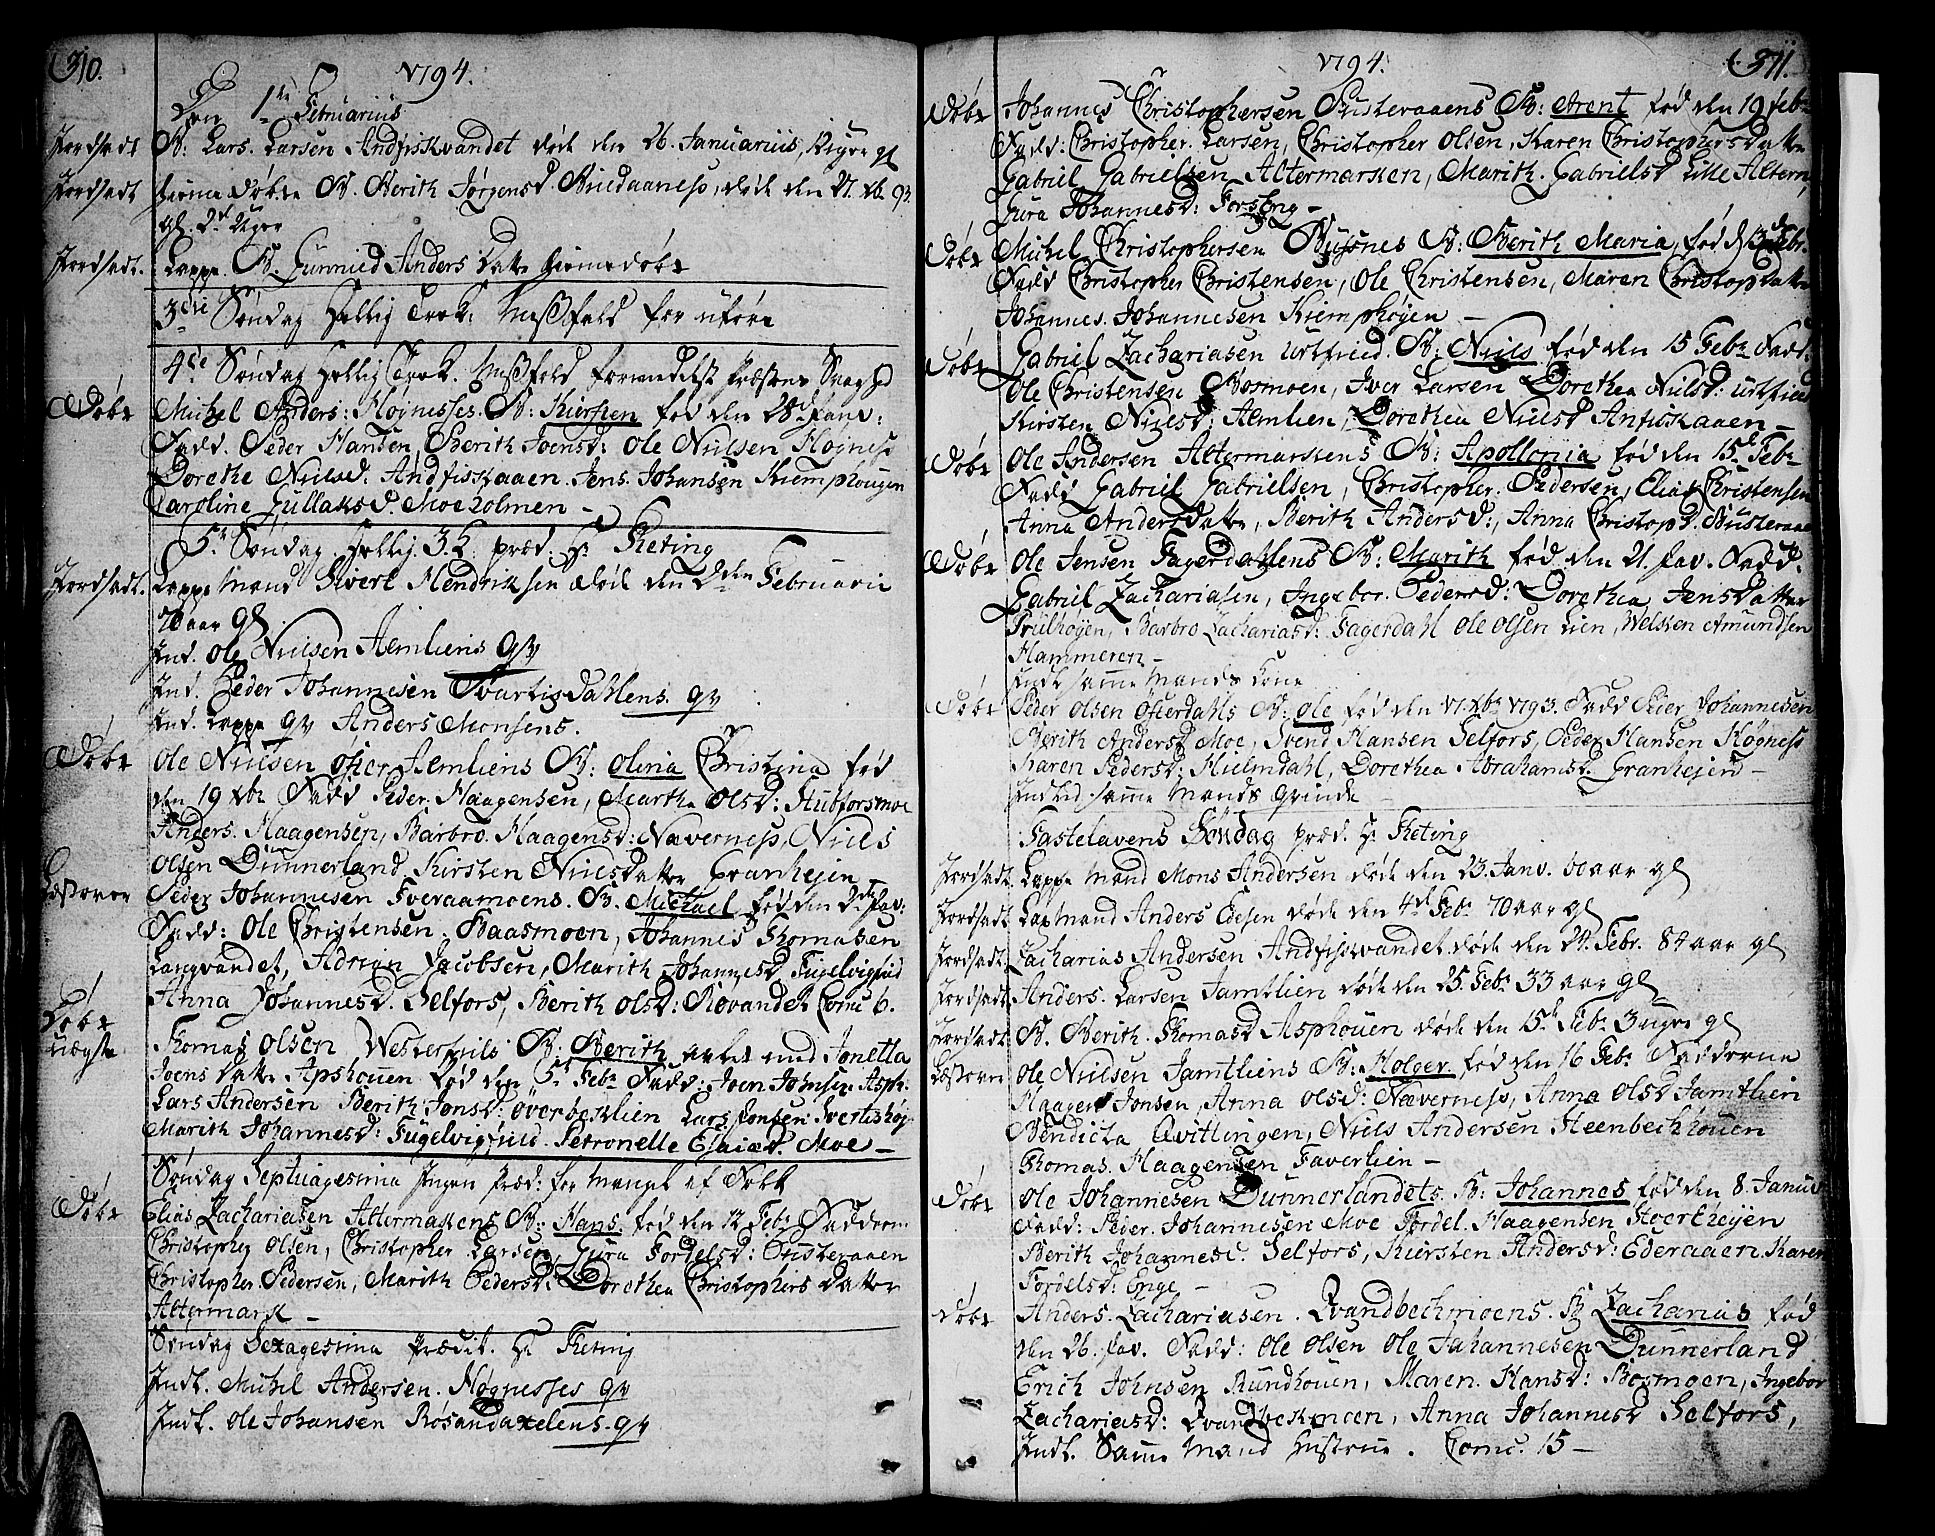 310.
1794.
Den 1te Februarius
Jordfæst B. Lars Larsen Andfiskvandet døde den 26. Januariis, Uger gl
Jordfæst hiemedøbte B. Berith Jørgensd. døde den 27. Xb 93.
gl. 2d Uger
Jordfæst. Lappe B. Gunnild Anders Datter hiemedøbt
3die Søndag Hellig Trek. Mæssfald for uføre
4de Søndag Hellig Trek. Mæssfald formedelst Præstens Svaghed
Døbt Michel Anders: Høgnesses B: Kirsten fød den 28d Janv:
Fadd. Peder Hansen, Berith Joensd: Ole Nielsen Høgness
Dorothe Nielsd: Andfiskaaen. Jens Johansen Kiemphougen
Caroline Gullaksd. Moeholmen –
5te Søndag Hellig 3 K. præd. Hr Keting
Jordfæst. Lappe Mand Siverl Hendriksen død den 2den Februarii
70 aar gl.
Ind. Ole Nielsen Aemliens qv
Ind. Peder Johannesen Svartisdahlens qv
Ind. Lappe qv Anders Monsens.
Døbt Ole Nielsen øfier Aemliens B: Olina Christina fød
den 19 Xbr Fadd Peder Haagensen, Martha Olsd: Hubforsmoe
Anders. Haagensen, Barbro. Haagensd: Næverness, Niels
Olsen Dunnerland Kirsten Nielsdatter Granheien
Peder Johannesen Tveraamoens. B. Michael fød den 2de Jav:
Fadd: Ole Christensen Baasmoen, Johannes Thomasen
Langvandet, Adrian Jacobsen, Marith Johannesd Fugelvigfied
Anna Johannesd. Selfors, Berith Olsd: Røvandet Comc 6.
Døbt uægte Thomas Olsen Westerfiels B: Berith avlet med Jonetta
Joens Datter Apshouen fød den 5t Febr Fadd: Joen Johnsen Asph:
Lars Andersen Berith Jonsd: Överbeklien Lars Jonsen Svertishøy
Marith Johannesd: Fugelvigfied. Petronelle Elaiæd. Moe –
Søndag Septuagesima Ingen Præd: for Mangel af Folk
Døbt Elias Zachariasen Altermarkens B: Hans. fød den 12 Febr Faddern
Christopher Olsen, Christopher Larsen, Gura Fordelsd: Ousteraaen
Christopher Pedersen, Marith Pedersd: Dorothea Christophers Datter
Altermark –
Søndag Sexagesima Prædik. Hr Keting
Indl. Michel Andersen. Høgnesses qv
Indl. Ole Johansen Røsandaxelens. qv
1794.
311.
Døbt Johannes Christophersen Ousteraaens B: Arent fød den 19 Febr
Fadd: Christopher Larsen, Christopher Olsen, Karen Christophersdatter
Gabriel Gabrielsen Altermarken, Marith. Gabrielsd Lille Altern,
Gura Johannesd: Forsong –
Døbt Michel Christophersen Busnes B: Berith Maria, fød d 13 Febr.
Fadd Christopher Christensen, Ole Christensen, Maren Christopdatter
Johannes. Johannesen Kiemphøyen –
Døbt Gabriel Zachariasen Urtfied. B: Niels fød den 15 Febr Fadd:
Ole Christensen Bosmoen, Iver Larsen Dorothea Nielsd: Urtfied
Kirsten Nielsd: Aemlien, Dorothea Nielsd Anfiskaaen –
Døbt Ole Andersen Altermarkens B: Apollonia fød den 15d Febr
Fadd Gabriel Gabrielsen, Christopher. Pedersen, Elias Christensen
Anna Andersdatter, Berith Andersd:, Anna Christophd. Ousteraae
Døbt Ole Jensen Fagerdahlens B: Marith fød den 21. Jav. Fadd:
Gabriel Zachariasen, Ingebor. Pedersd: Dorothea Jensdatter
Prælhøyen, Barbro Zachariasd: Fagerdahl Ole Olsen Lien, Welken Amundsen
Hammeren –
Indl samme Mands Kone
Døbt Peder Olsen Øfterdahls B: Ole fød den 17. Xbr 1793. Fadd Peder Johannesen
Berith Andersd Moe, Svend Hansen Selfors, Peder Hansen Høgness
Karen Pedersd: Hielmdahl, Dorothea Abrahamsd. Granheien –
Indled samme Mands Qvinde
Fastelavens Søndag præd. Hr Keting
Jordfæst. Lappe Mand Mons Andersen døde den 23. Janv. 60 aar gl
Jordfæst Lapmand Anders Edesen døde den 4d Febr 70 aar gl
Jordfæst. Zacharias Andersen Andfiskvandet døde den 24. Febr. 84 aar gl
Jordfæst Anders. Larsen Jamtlien døde den 25. Febr 33 aar gl
Jordfæst B. Berith Thomasd Asphouen døde den 15d Febr 3 uger gl
Læst over Ole Nielsen Jamtliens B: Holger fød den 16 Febr Fadderne
Haagen Jonsen, Anna Olsd: Næverness, Anna Olsd Jamtlien
Bendicta Qvitlingen, Niels Andersen Steenbechhouen
Thomas. Haagensen Faverlien –
Døbt Ole Johannesen Dunnerlandets B: Johannes fød den 8. Januv
Fadd: Peder. Johannesen Moe Fordel. Haagensen Storthejen
Berith Johannesd. Selfors, Kiersten Andersd: Ederaaen Karen
Fordelsd: Enge –
Døbt Anders. Zachariasen. Qvandbechmoens. B Zacharias fød
den 26. Jav. Fadd: Ole Olsen Ole Johannesen Dunnerland
Erich Johnsen Rundhouen, Maren. Hansd: Bosmoen, Ingebor
Zachariasd: Qvandbekmoen, Anna Johannesd Selfors,
Indl. Samme Mand Hustrue. Comc. 15 –